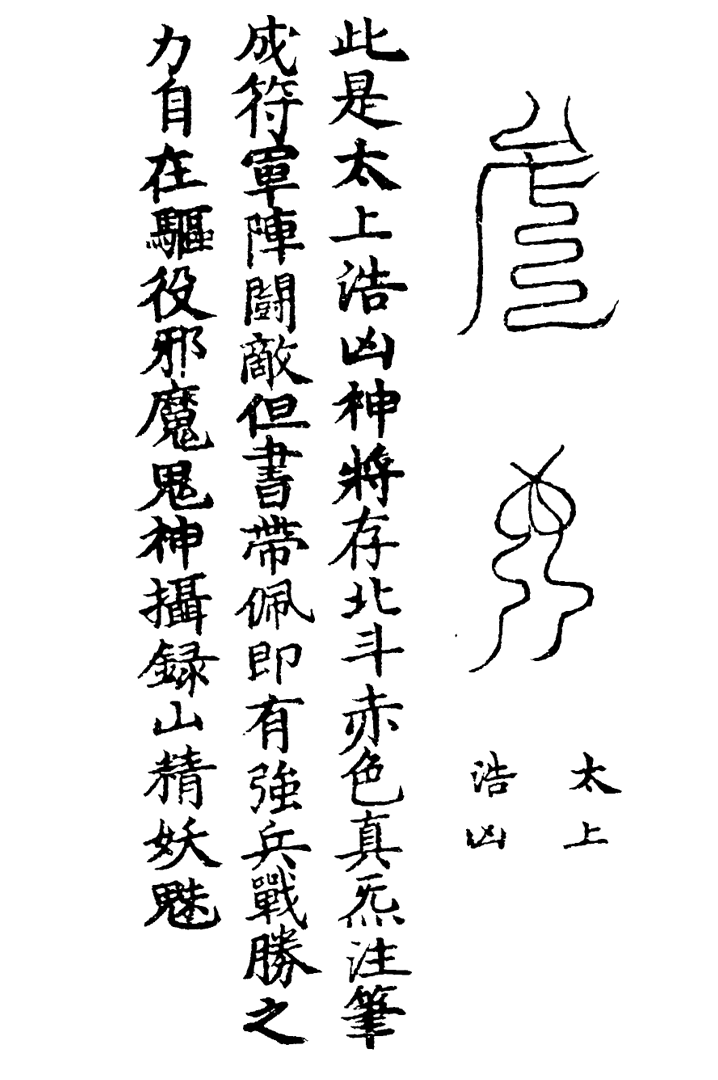 太上
浩凶
此是太上浩凶神將存北斗赤色真炁注筆
成符軍陣鬭敵但書帶佩即有強兵戰勝之
力自在驅役邪魔鬼神攝録山精妖魅